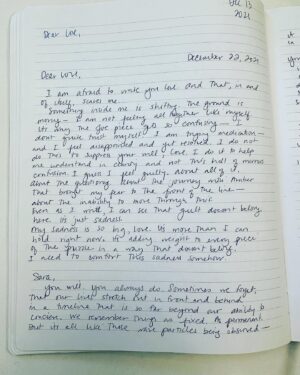 Dec 13
2021
Dear Love,
December 22, 2021
Dear Love,
I am afraid to write you love and that, in and
of itself, scares me.
Something inside me is shifting. The ground is
moving – I am not feeling all together like myself.
It's why the give piece gets so confusing – I
don't quite trust myself. I am trying medication –
and I feel disappointed and yet relieved. I do not
do this to suppress your will, Love. I do it to help
me understand in clarity and not this hell of
confusion. I guess I feel guilty about all of it.
about the questioning, about the journey
that brought my fear to the front of the line –
about the inability to move through this
Even as I write, I can see that guilt doesn't belong
here. It's just sadness.
My sadness is so big, Love. It's more than I can
hold right now. Its adding weight to every piece
of the puzzle in a way that doesn't belong.
I need to comfort this sadness somehow.
Sara,
You will. You always do. Sometimes we forget
that our lives stretch out in front and behind
in a timeline that is so far beyond our ability to
conceive. We remember things as fixed. As permanent.
But its all like these particles being observed –